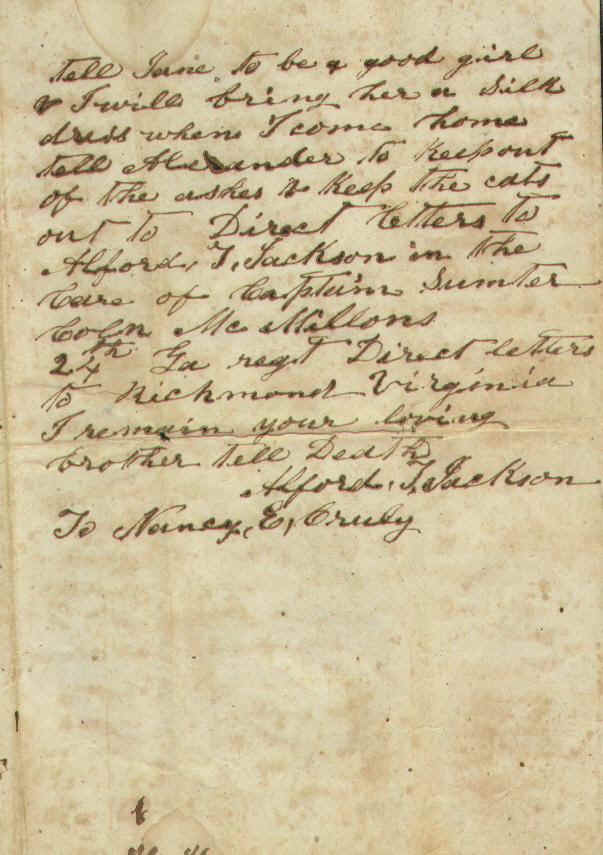 tell Jane to be a good girl
& I will bring her a Silk
dress when I come home
tell Alexander to Keep out
of the ashes & Keep the cats
out to Direct letters to
Alford, T, Jackson in the
Care of Captain Sumter
Coln Mc Millons
24th Ga regt Direct letters
to Richmond Virginia
I remain your loving
brother tell Death
Alford, T, Jackson
To Nancy, E, Cruly